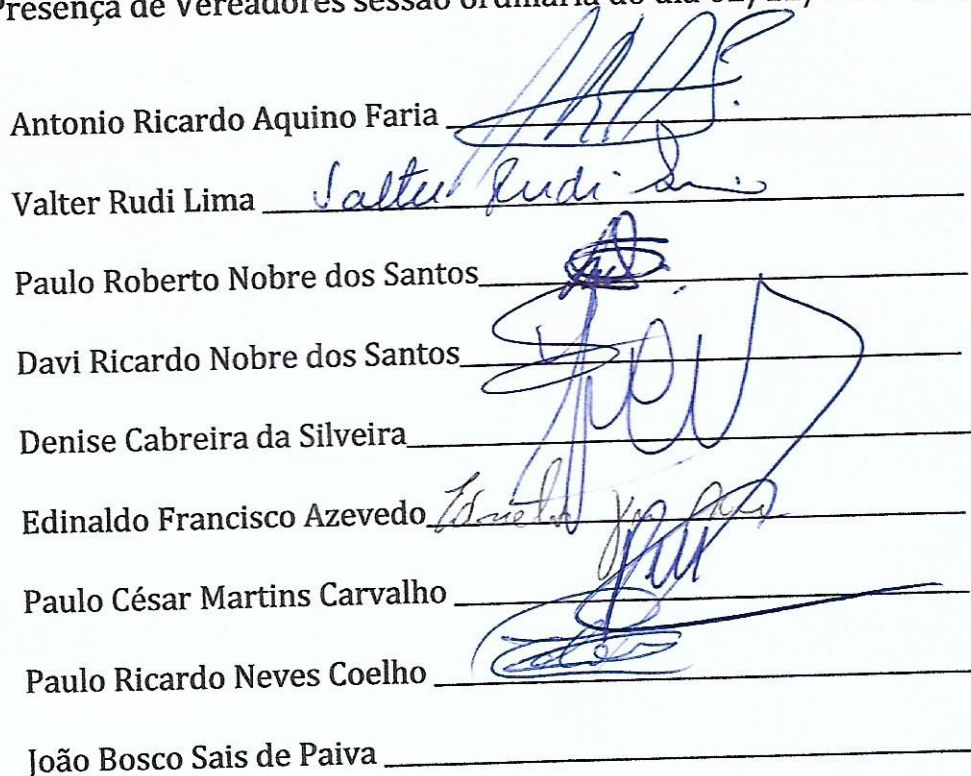 Presença de Vereadores sessão ordinária do dia
Antonio Ricardo Aquino Faria
Valter Rudi Lima Valter Rudi
Paulo Roberto Nobre dos Santos
Davi Ricardo Nobre dos Santos
Denise Cabreira da Silveira
Edinaldo Francisco Azevedo
Paulo César Martins Carvalho
Paulo Ricardo Neves Coelho
João Bosco Sais de Paiva